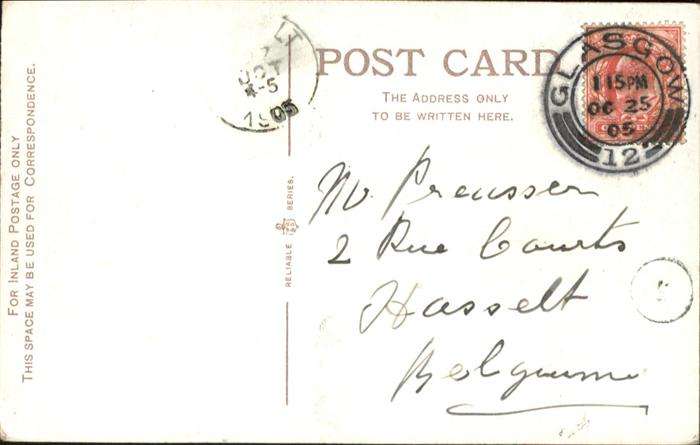 FOR INLAND POSTAGE ONLY
THIS SPACE MAY BE USED FOR CORRESPONDENCE.
LT
OCT
4-5
1905
RELIABLE SERIES.
POST CARD
THE ADDRESS ONLY
TO BE WRITTEN HERE.
GLASGOW
1 15PM
OC 25
05
12
Preusser
2 Rue Courts
Hasselt
Belgium